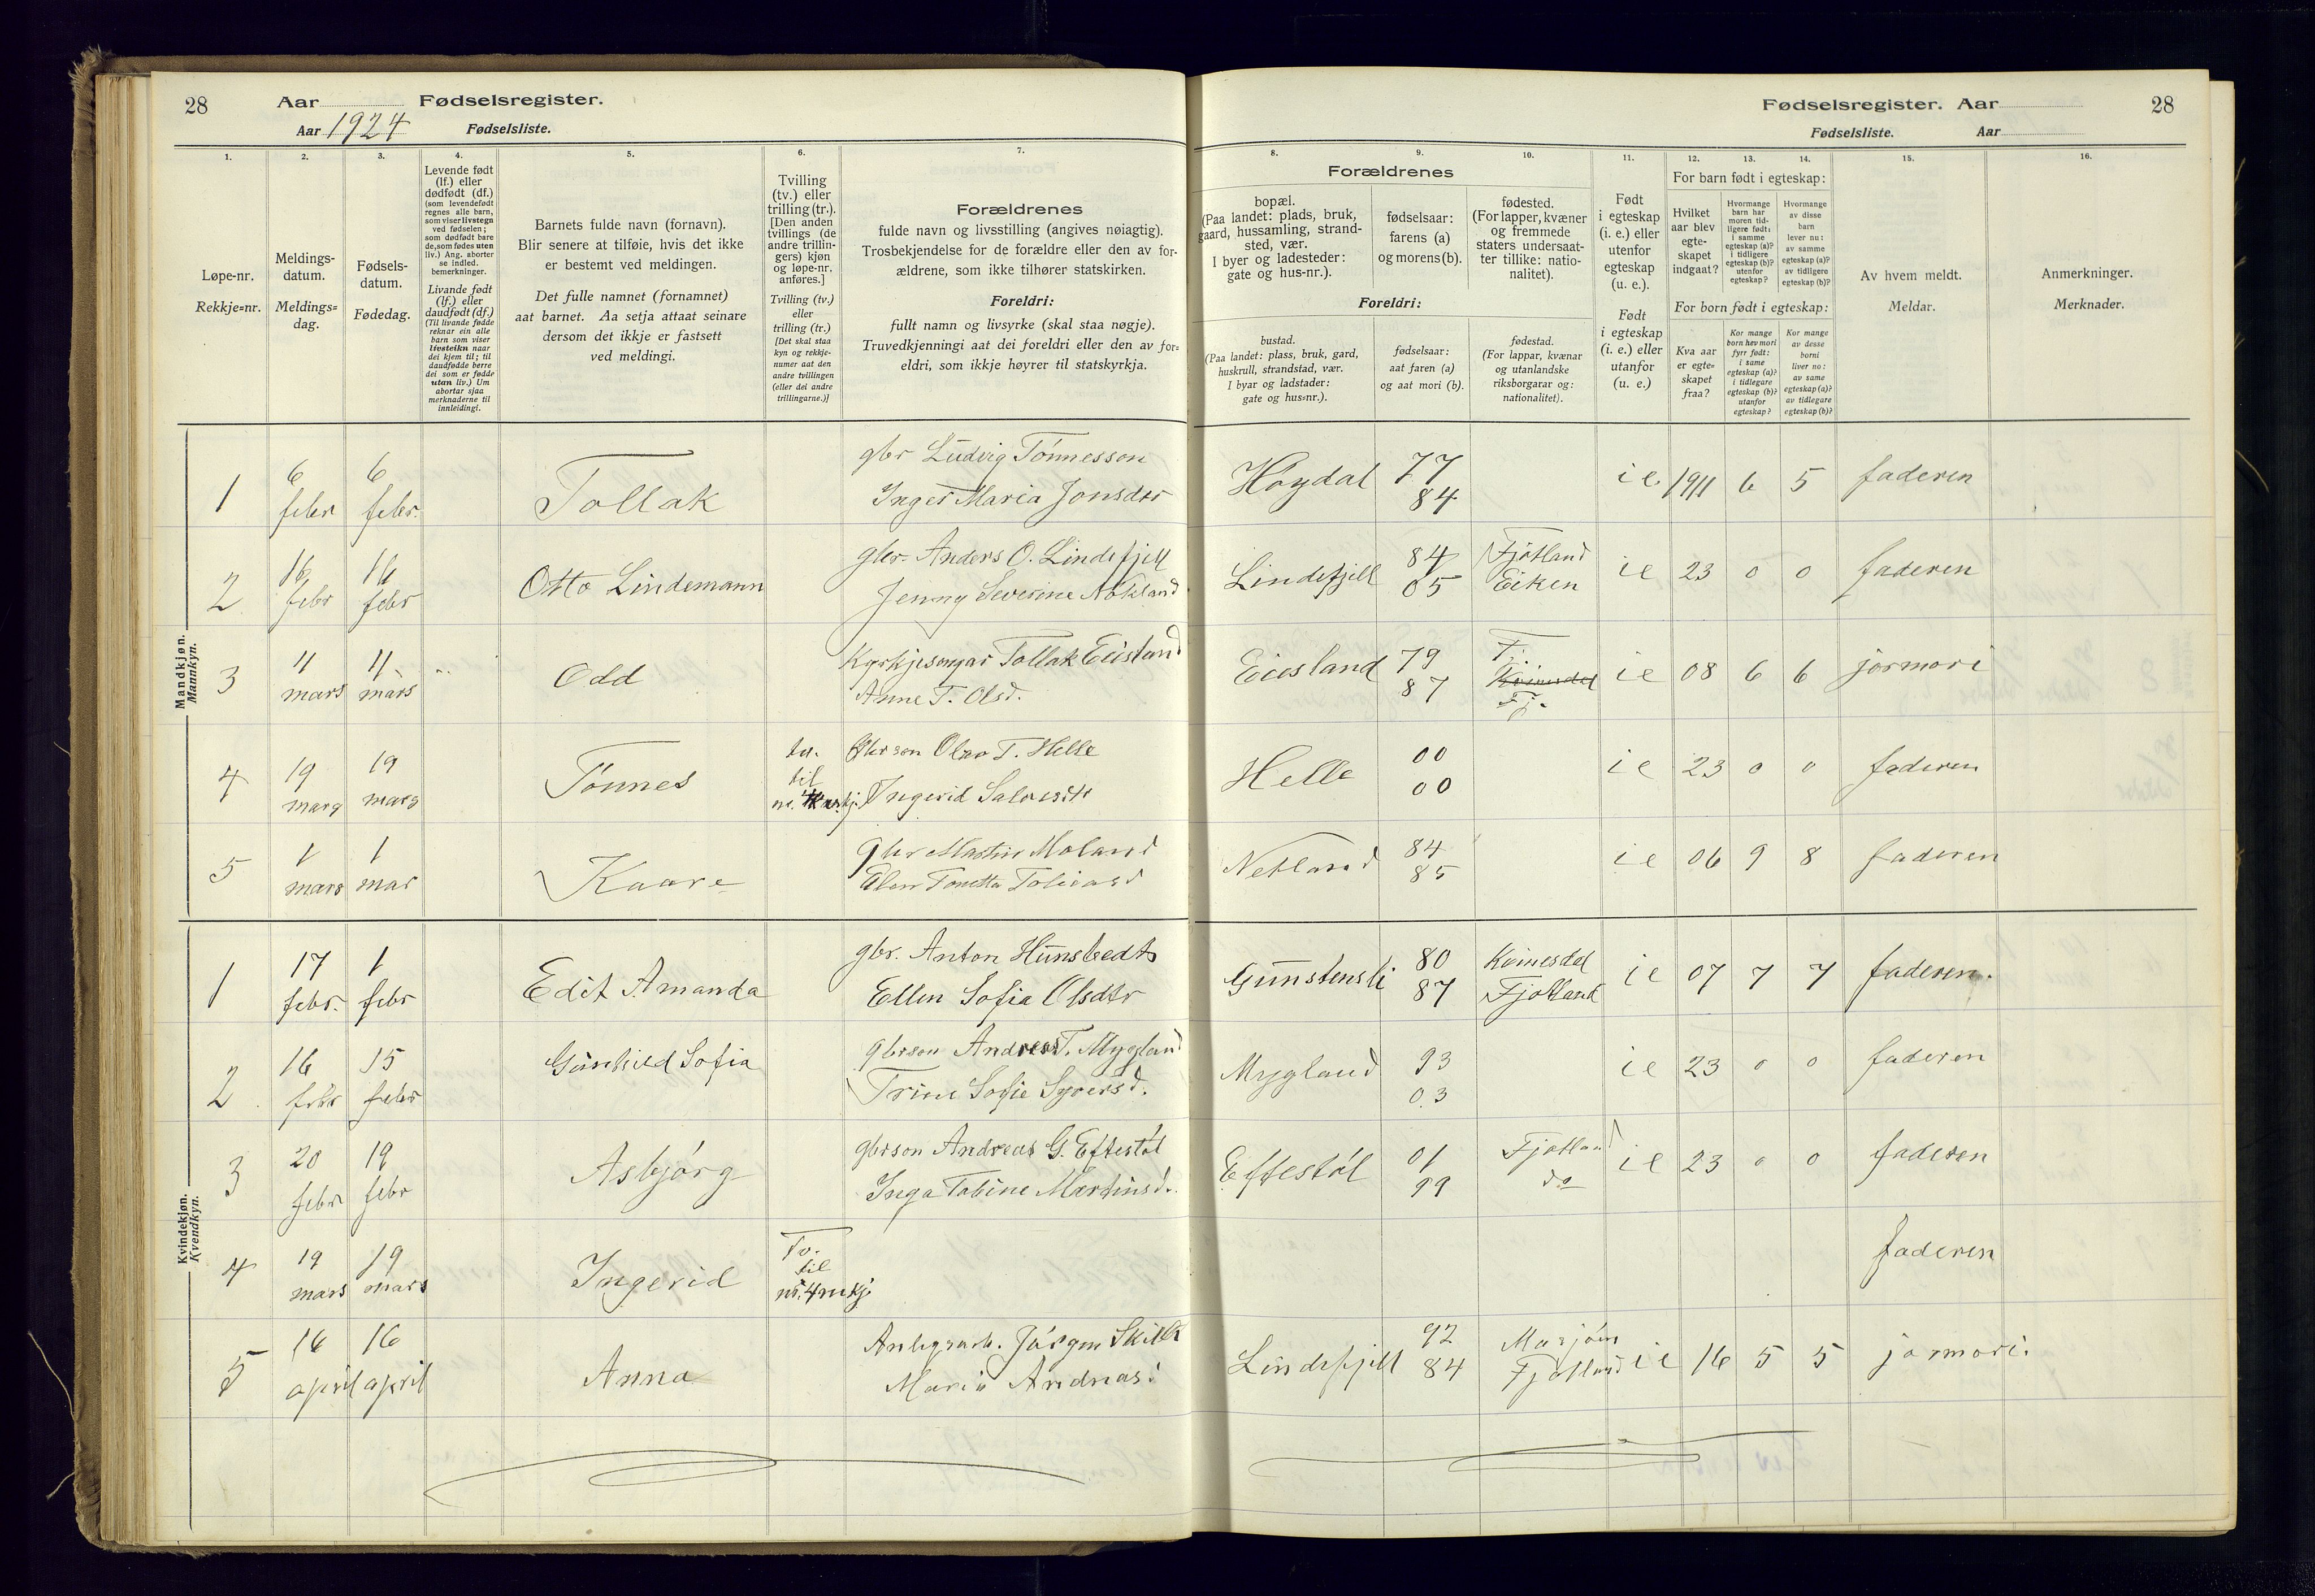 28
Aar
Fødselsregister.
Aar 1924
Fødselsliste.
Fødselsregister. Aar
28
Fødselsliste.
Aar
1.
Løpe-nr.
Rekkje=nr.
2.
Meldings-
datum.
Meldings=
dag.
3.
Fødsels-
datum.
Fødedag.
4.
Levende født
(lf.) eller
dødfødt (df.)
(som levendefødt
regnes alle barn,
som viser livstegn
ved fødselen;
som dødfødt bare
de, som fødes uten
liv.) Ang. aborter
se indled.
bemerkninger.
Livande født
(lf.) eller
daudfødt (df.)
(Til livande fødde
reknar ein alle
barn som viser
livsteikn naar
dei kjem til; til
daudfødde berre
dei som er fødde
utan liv.) Um
abortar sjaa
merknaderne til
innleidingi.
5.
Barnets fulde navn (fornavn).
Blir senere at tilføie, hvis det ikke
er bestemt ved meldingen.
Det fulle namnet (fornamnet)
aat barnet. Aa setja attaat seinare
dersom det ikkje er fastsett
ved meldingi.
6.
Tvilling
(tv.) eller
trilling (tr.).
[Den anden
tvillings (de
andre trillin-
gers) kjøn
og løpe-nr.
anføres.]
Tvilling (tv.)
eller
trilling (tr.)
[Det skal staa
kyn og rekkje-
numer aat den
andre tvillingen
(eller dei andre
trillingarne.)]
7.
Forældrenes
fulde navn og livsstilling (angives nøiagtig).
Trosbekjendelse for de forældre eller den av for-
ældrene, som ikke tilhører statskirken.
Foreldri:
fullt namn og livsyrke (skal staa nøgje).
Truvedkjenningi aat dei foreldri eller den av for=
eldri, som ikkje høyrer til statskyrkja.
Forældrenes
8.
bopæl.
(Paa landet: plads, bruk,
gaard, hussamling, strand-
sted, vær.
I byer og ladesteder:
gate og hus-nr.).
9.
fødselsaar:
farens (a)
og morens (b).
10.
fødested.
(For lapper, kvæner
og fremmede
staters undersaat-
ter tillike: natio-
nalitet).
Foreldri:
bustad.
(Paa landet: plass, bruk, gard,
huskrull, strandstad, vær.
I byar og ladstader:
gate og hus=nr.).
fødselsaar:
aat faren (a)
og aat mori (b).
fødestad.
(For lappar, kvænar
og utanlandske
riksborgarar og:
nationalitet).
11.
Født
i egteskap
(i. e.) eller
utenfor
egteskap
(u. e.).
Født
i egteskap
(i. e.) eller
utanfor
(u. e.)
For barn født i egteskap:
12.
Hvilket
aar blev
egte-
skapet
indgaat?
13.
Hvormange
barn har
moren tid-
ligere født:
i samme
egteskap (a)?
i tidligere
egteskap (b)?
utenfor
egteskap?
14.
Hvormange
av disse
barn
lever nu:
av samme
egteskap (a)?
av tidligere
egteskap (b)?
For born født i egteskap:
Kva aar
er egte=
skapet
fraa?
Kor mange
born hev mori
fyrr født:
i same
egteskap (a)?
i tidlegare
egteskap (b)?
utanfor
egteskap?
Kor mange
av desse
borni
liver no:
av same
egteskap (a)?
av tidlegare
egteskap (b)?
15.
Av hvem meldt.
Meldar.
16.
Anmerkninger.
Merknader.
Mandkjøn.
Mannkyn.
1 6 febr 6 febr. Tollak gbr Ludvig Tönnesson
Inger Maria Jonsdtr Höydal 77 84 i e 1911 6 5 faderen
2 16 febr 16 febr Otto Lindemann gbr. Anders O. Lindefjell
Jenny Severine Nökland Lindefjell 84 05 Fjotland Eiken i e 23 0 0 faderen
3 11 mars 11 mars Odd Kyrkjesongar Tollak Eiesland
Anne T. Olsd. Eiesland 79 87 F. Kvinesdal Fj. i e 08 6 6 jormori
4 19 mars 19 mars Tönnes tv. til nr. 4 kv.kj. Gbrson Olav T. Helle
Ingerid Salvesdtr Helle 00 00 i e 23 0 0 faderen
5 1 mars 1 mar Kaare gbr Martin Moland
Elen Tonetta Tobiasd Netland 84 85 i e 06 9 8 faderen
Kvindekjøn.
Kvendkyn.
1 17 febr. 1 febr Edit Amanda gbr. Anton Hunsbedt
Ellen Sofia Olsdtr Gunstensli 80 87 Kvinesdal Fjotland i e 07 7 7 faderen.
2 16 febr 15 febr Gunhild Sofia gbrson Andreas T. Mygland
Trine Sofie Syversd. Mygland 93 03 i e 23 0 0 faderen
3 20 febr 19 febr Asbjörg gbrson Andreas G. Eftestöl
Inga Tobine Martinsd. Eftestöl 01 99 Fjotland do i e 23 0 0 faderen
4 19 mars 19 mars Ingerid Tv. til nr. 4 m kj faderen
5 16 april 16 april Anna Anlegsarb. Jörgen
Maria Andreasd Lindefjell 92 84 Fjotland i e 16 5 5 jormori.